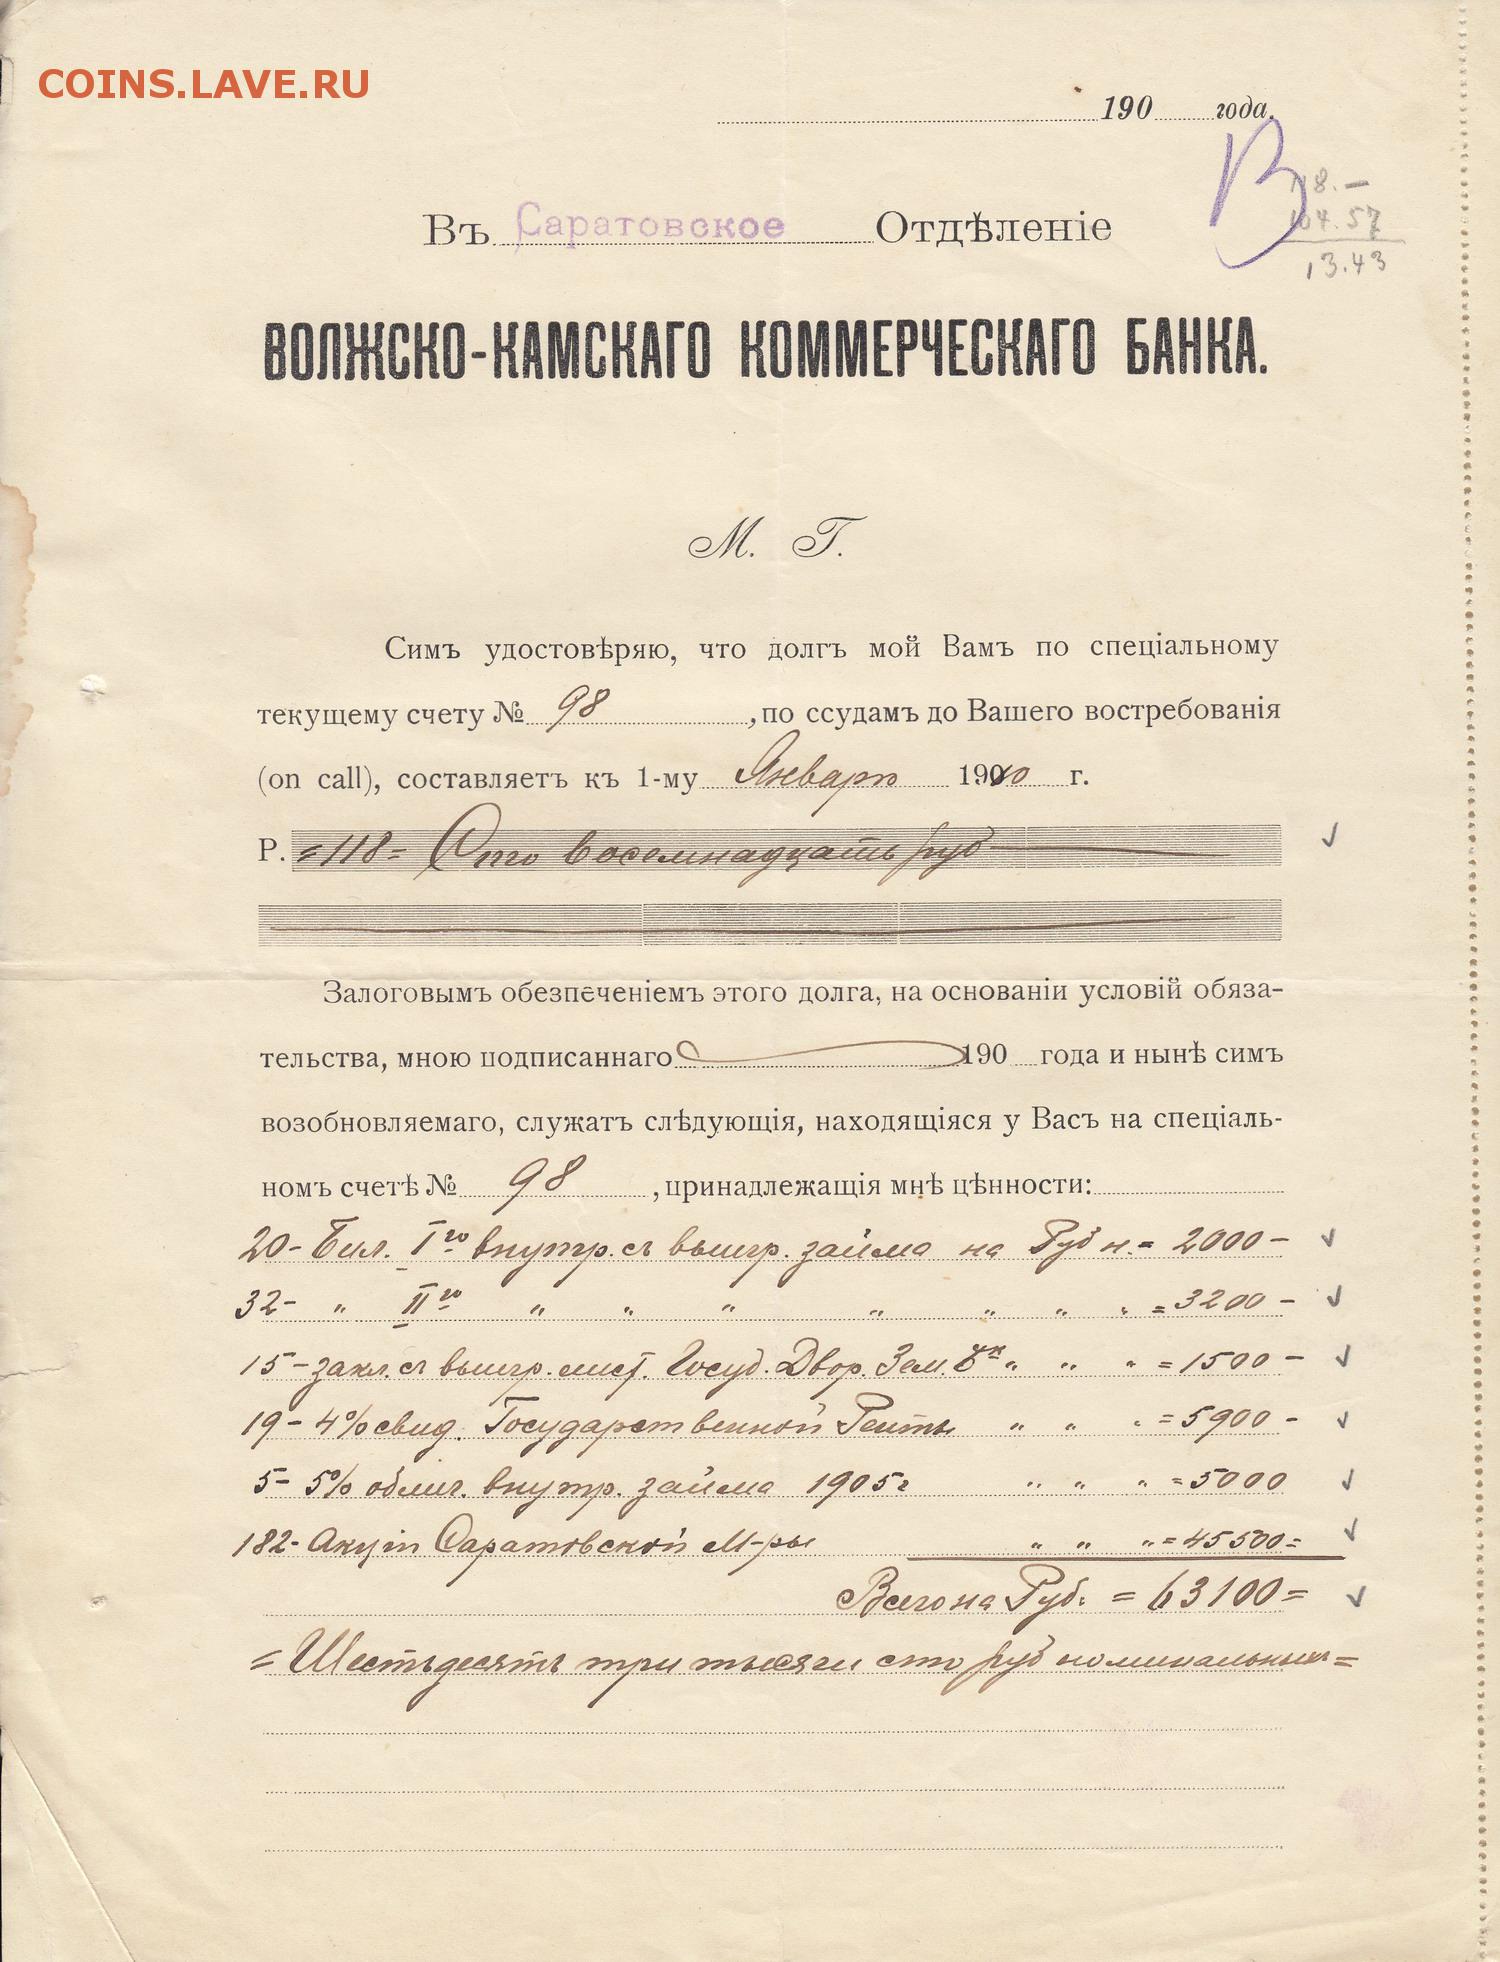 COINS.LAVE.RU
190 года.
В
118.—
104.57
13.43
Въ Саратовское Отдѣленіе
ВОЛЖСКО-КАМСКАГО КОММЕРЧЕСКАГО БАНКА.
М. Г.
Симъ удостовѣряю, что долгъ мой Вамъ по спеціальному
текущему счету № 98, по ссудамъ до Вашего востребованія
(on call), составляетъ къ 1-му Января 1910 г.
Р. =118= Сто восемнадцать руб
Залоговымъ обезпеченіемъ этого долга, на основаніи условій обяза-
тельства, мною подписаннаго 190 года и нынѣ симъ
возобновляемаго, служатъ слѣдующія, находящіяся у Васъ на спеціаль-
номъ счетѣ № 98, принадлежащія мнѣ цѣнности:
20- Бил. Iго внутр. съ выигр. займа на Руб н. = 2000 -
32- " IIго " " " " " " " = 3200 -
15 - закл. съ выигр. лист. Госуд. Двор. Зем. Бк " " " = 1500 -
19 - 4% свид. Государственной Ренты " " " = 5900 -
5 - 5% облиг. внутр. займа 1905 г " " " = 5000
182- Акціи Саратовской М-ры " " " = 45500 =
Всего на Руб. = 63100 =
= Шестьдесятъ три тысячи сто руб номинальныхъ =